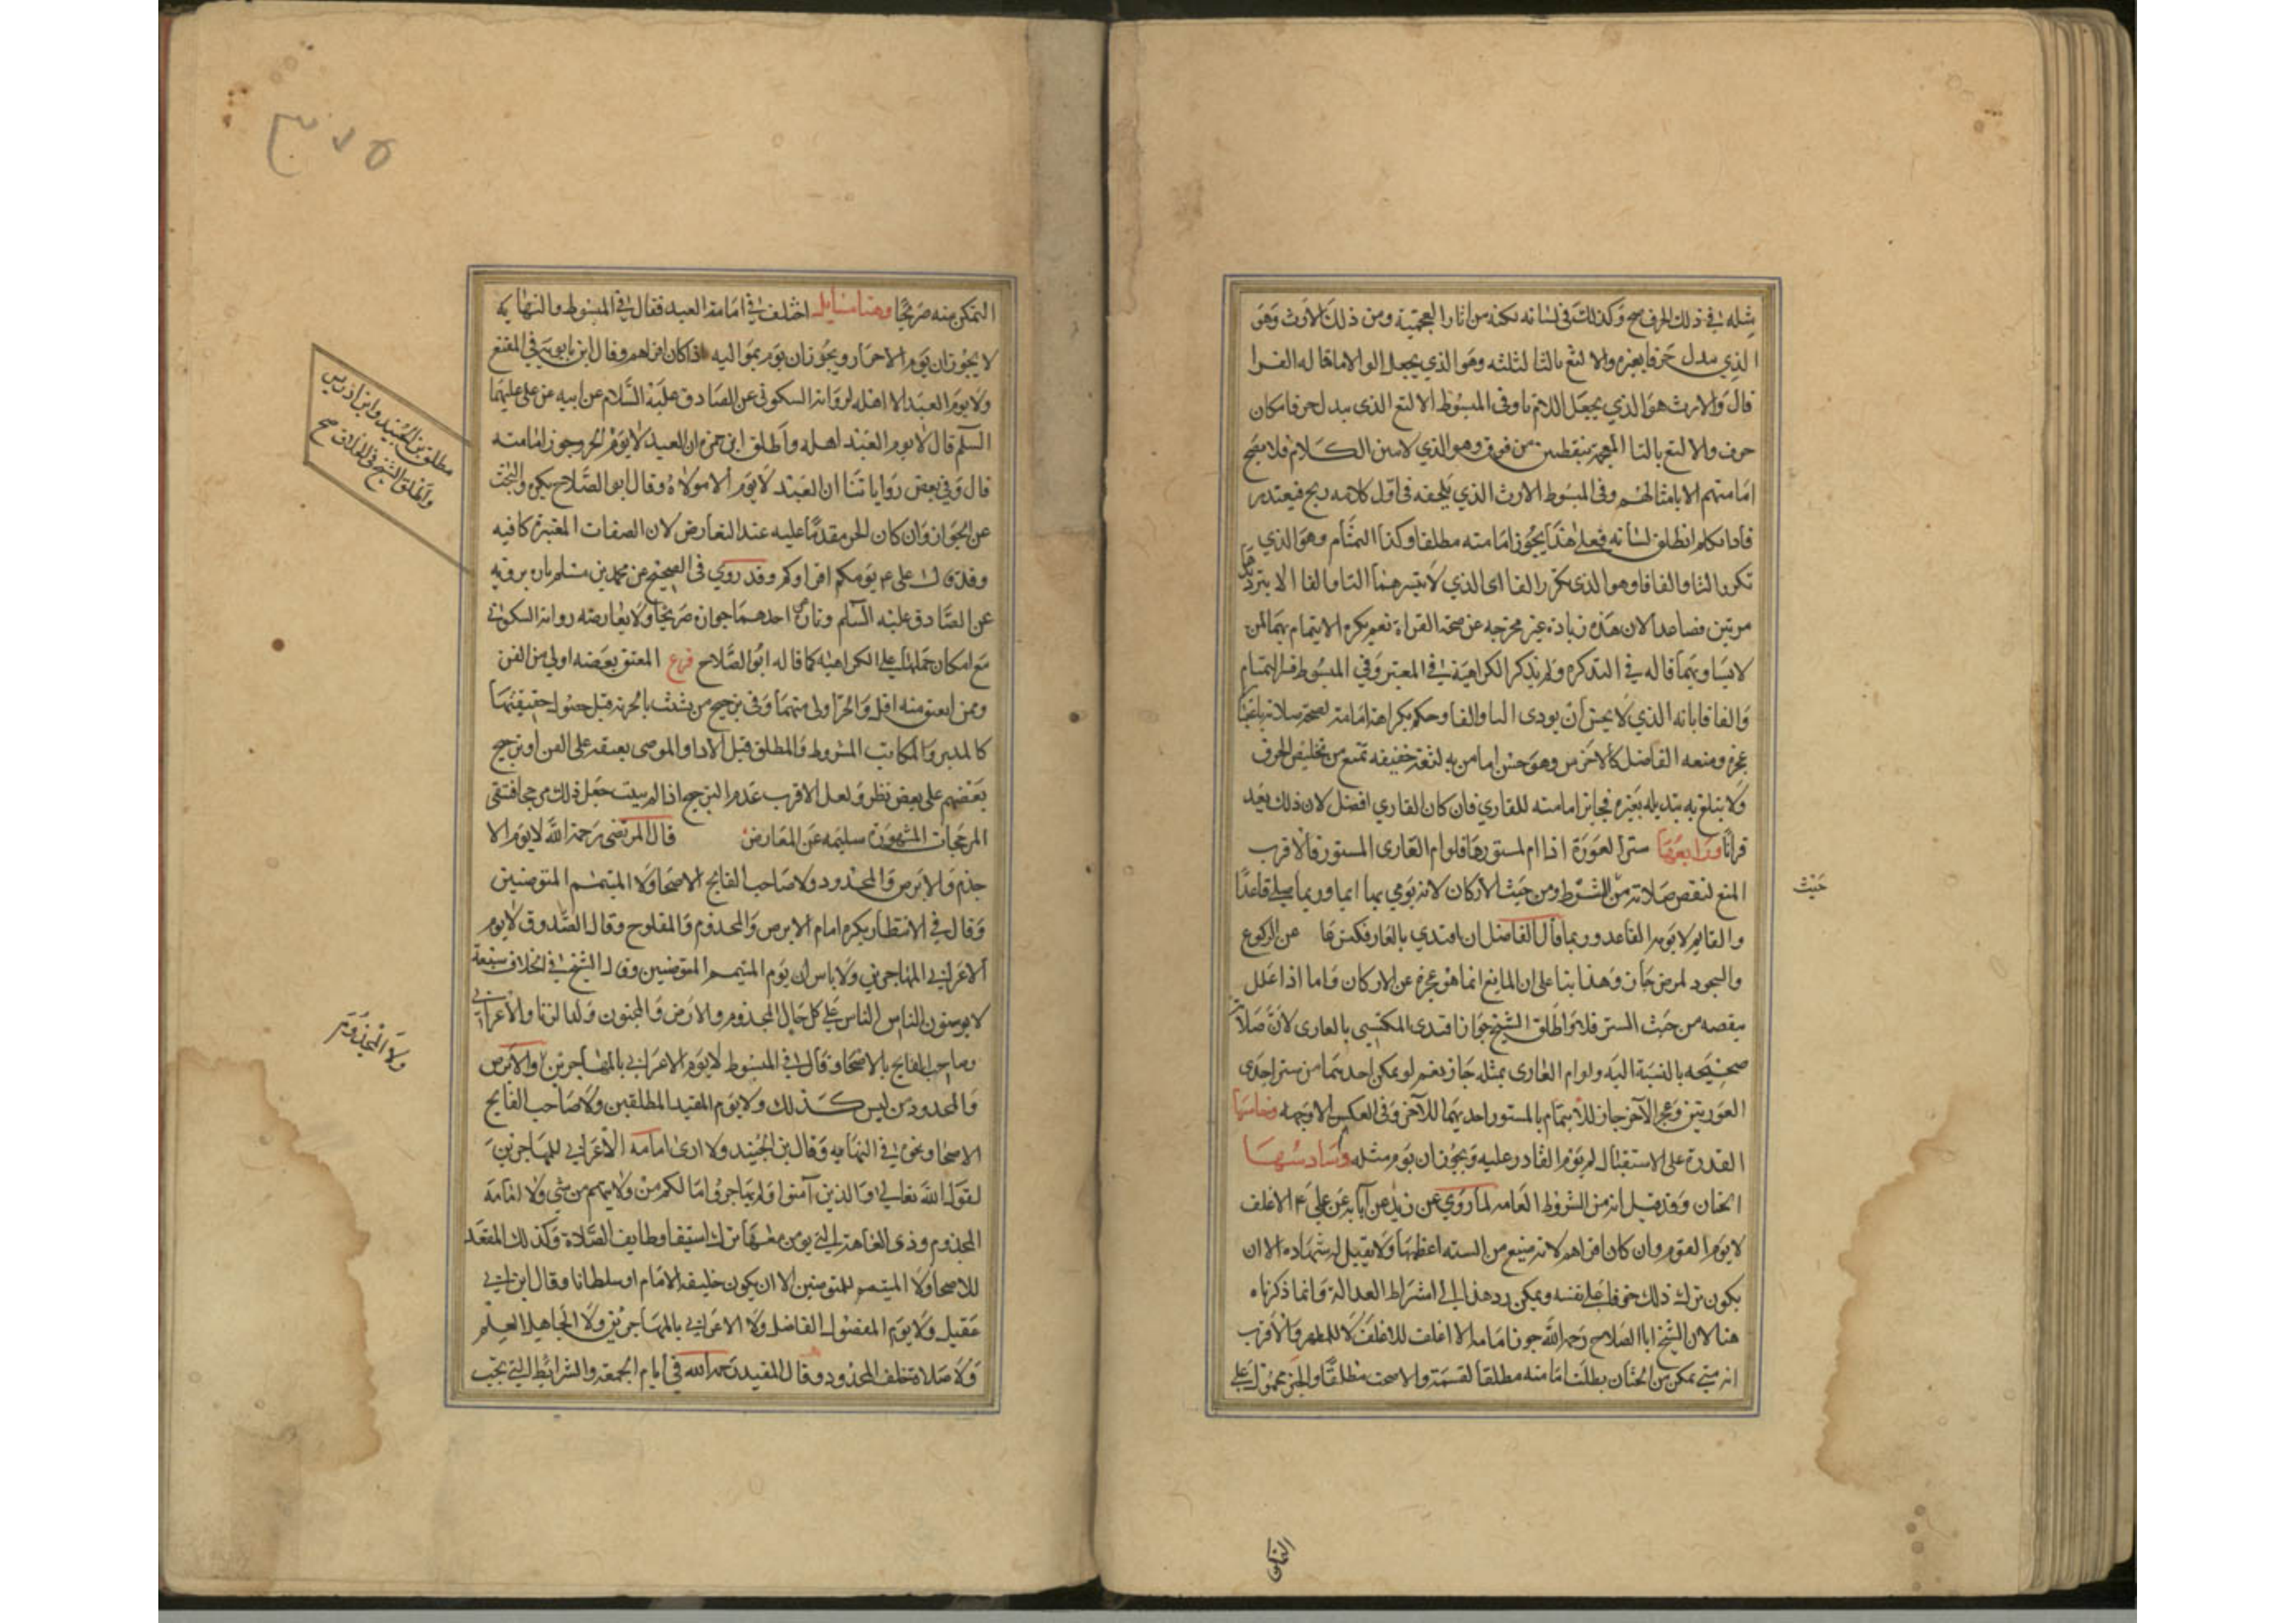 مثله في ذلك الحرف صح وكذلك في لسانه لكنه من اثار العجمية ومن ذلك الارث وهو
الذي يبدل حرفا بغيره والالثغ بالثا لثلثه وهو الذي يجعل الرا لاما قاله الفرا
قال والارث هو الذي يجعل اللام يا وفي المبسوط الالثغ الذي يبدل حرفا مكان
حرف والالتغ بالتا المعجمة بنقطتين من فوق وهو الذي لا يبين الكلام فلا يصح
امامتهم الا بامثالهم وفي المبسوط الارث الذي يلحقه في اول كلامه ريح فيتعذر
فاذا تكلم انطلق لسانه فعلى هذا يجوز امامته مطلقا وكذا التمتام وهو الذي
تكرر التا والفافا وهو الذي يكرر الفا اى الذي لا يتيسر هنا التا والفا الا بترديدها
مرتين فصاعدا لان هذه زيادة غير مخرجه عن صحة القراة نعم يكره الايتمام بهما لمن
لا يساويهما قاله في التذكره ولم يذكر الكراهية في المعتبر وفي المبسوط فسر التمتام
والفافا بانه الذي لا يحسن ان يودى التا والفا وحكم بكراهة امامته لصحة صلاته
عجزه ومنعه الفاضل كالاخرس وهو حسن اما من به لثغة خفيفه تمنع من تخليص الحرف
ولا يبلغ به تبديله بغيره فجايز امامته للقاري فان كان القاري افضل لان ذلك يعد
قرانا ورابعها ستر العورة اذا ام لمستورها فلو ام العارى المستور فالاقرب
المنع لنقص صلاته من حيث الشروط ومن حيث الاركان لانه يومي بها ايما وربما يصلي قاعدا
والقايم لا يومه القاعد وربما قال الفاضل ان اقتدي بالعار عن الركوع
والسجود لمرض جاز وهذا بنا على ان المانع انما هو عجزه عن الاركان واما اذا علل
بنقصه من حيث الستر فلا واطلق الشيخ جواز اقتدى المكتسي بالعارى لان صلاته
صحيحه بالنسبة اليه ولو ام العارى بمثله جاز نعم لو يمكن احدهما من ستر احدى
العورتين وعجز الآخر جاز للايتمام بالمستور احديهما للآخر وفى العكس الاوجه وخامسها
القدرة على الاستقبال لم يوم القادر عليه ويجوز ان يوم مثله وسادسها
الختان وقد قيل انه من الشروط العامه لما روي عن زيد عن آبائه عن علي ع الاغلف
لا يوم القوم وان كان اقراهم لانه ضيع من السنه اعظمها ولا يقبل له شهاده الا ان
يكون ترك ذلك خوفا على نفسه ويمكن رد هذا الى اشتراط العدالة وانما ذكرناه
هنا لان الشيخ ابا الصلاح رحمه الله جوز امامه الاغلف للاغلف لا للمطهر والاقرب
انه متى تمكن من الختان بطلت امامته مطلقا لفسقه والا صحت مطلقا والخبر محمول على
حيث
التمكن منه صريحا وهنا مسايل اختلف في امامة العبد فقال في المبسوط والنهايه
لا يجوز ان يوم الاحرار ويجوز ان يوم بمواليه اذا كان اقراهم وقال ابن بابويه في المقنع
ولا يوم العبد الا اهله لرواية السكوني عن الصادق عليه السلام عن ابيه عن على عليهما
السلم قال لا يوم العبد اهله واطلق ابن حمزه ان العبد لا يوم الحر وجوز امامته
قال وفي بعض رواياتنا ان العبد لا يوم الا مولاه وقال ابو الصلاح يكره والبحث
عن الجواز وان كان الحر مقدما عليه عند التعارض لان الصفات المعتبرة كافيه
وقد قال على ع يومكم اقراوكم وقد روي في الصحيح عن محمد بن مسلم تاره بروية
عن الصادق عليه السلم وتارة عن احدهما جوازه صريحا ولا يعارضه رواية السكوني
مع امكان حملها على الكراهيه كما قاله ابو الصلاح فرع المعتق بعضه اولي من القن
وممن اعتق منه اقل والحر اولى منهما وفي ترجيح من يتشبث بالحرية قبل حصول حقيقتها
كالمدبر والمكاتب المشروط والمطلق قبل الادا والموصى بعتقه على القن او ترجيح
بعضهم على بعض نظر ولعل الاقرب عدم الترجيح اذا لم يثبت جعل ذلك مرجحا فتبقى
المرجحات المشهورة سليمه عن المعارض قال المرتضى رحمة الله لا يوم الا
جذم والابرص والمحدود ولا صاحب الفالج الاصحا ولا المتيمم المتوضيين
وقال في الانتصار يكره امام الابرص والمجذوم والمفلوج وقال الصدوق لا يوم
الاعرابي المهاجرين ولا باس ان يوم المتيمم المتوضيين وقال الشيخ في الخلاف سبعة
لا يومون الناس على كل حال المجذوم والابرص والمجنون وولد الزنا والاعرابي
وصاحب الفالج بالاصحا وقال في المبسوط لا يوم الاعرابي بالمهاجرين والابرص
والمحدود من ليس كذلك ولا يوم المقيد المطلقين ولا صاحب الفالج
الاصحا ونحوه في النهايه وقال بن الجنيد ولا ارى امامه الاعرابي للمهاجرين
لقول الله تعالي والذين آمنوا ولم يهاجروا ما لكم من ولايتهم من شي ولا امامة
المجذوم وذى العاهة التي يومن معها ترك استيفا وظايف الصلاة وكذلك المقعد
للاصحا ولا المتيمم للمتوضين الا ان يكون خليفه الامام او سلطانا وقال ابن ابي
عقيل ولا يوم المفضول الفاضل ولا الاعرابي بالمهاجرين ولا الجاهل العلم
ولا صلاة خلف المحدود وقال المفيد رحمه الله في امام الجمعة والشرايط التي يجب
مطلق بن الجنيد وابن ادريس
واطلق الشيخ في الخلاف صح
ولا المجذوم